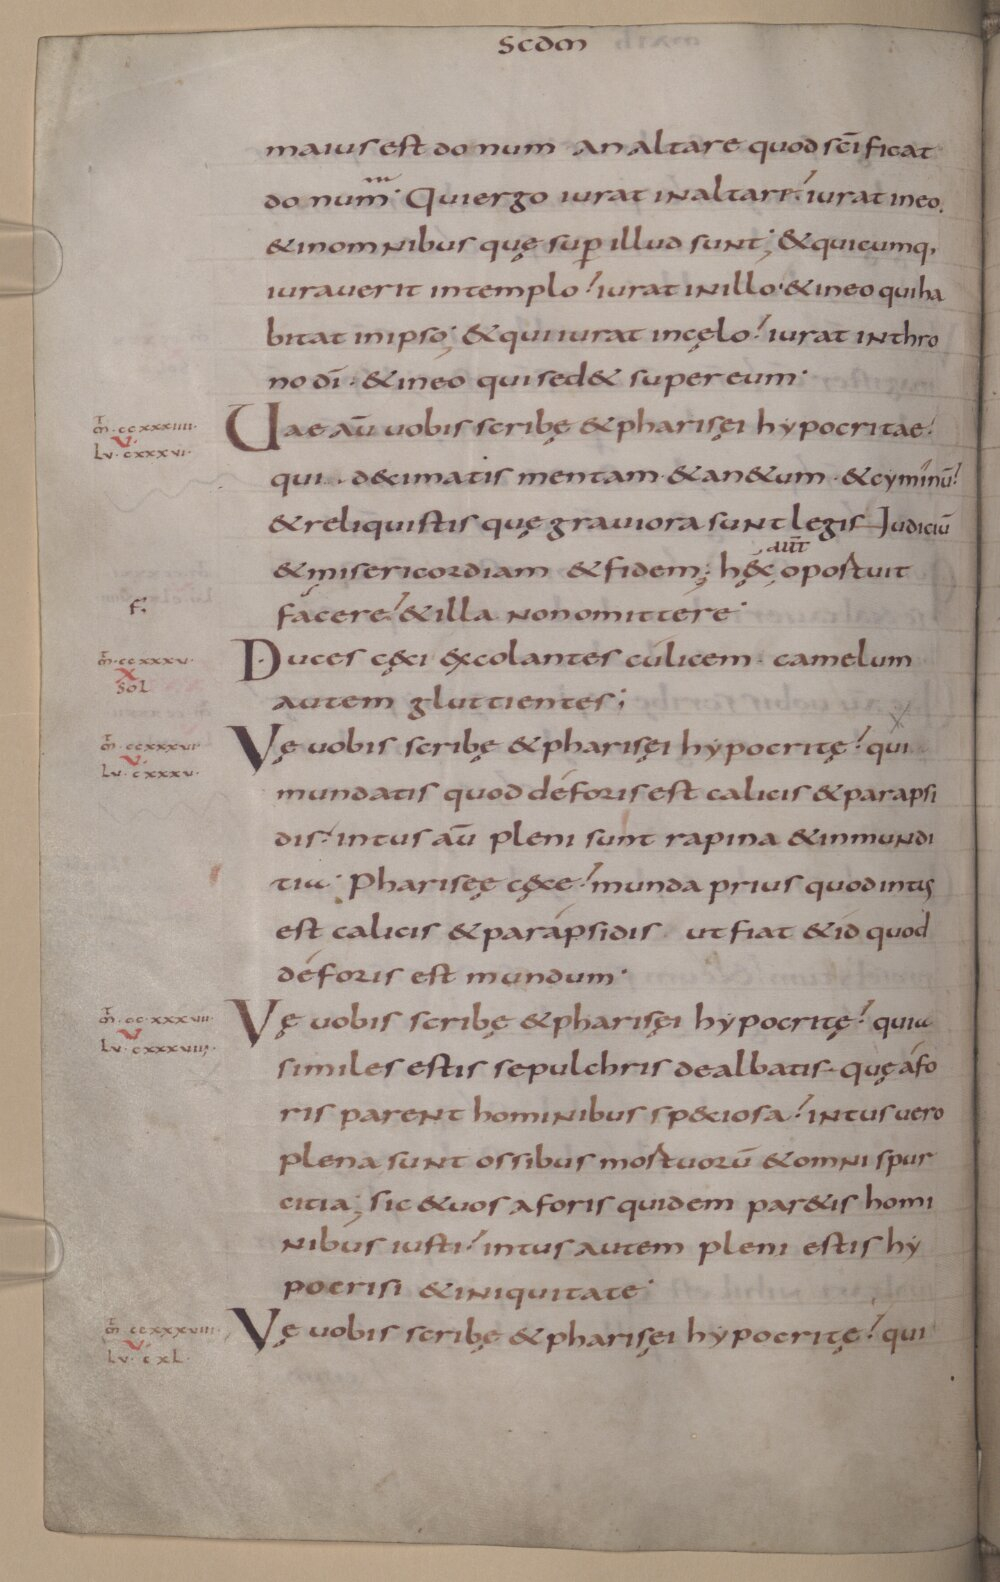 Scdm
maius est donum an altare quod scīficat
donum. Qui ergo iurat in altare? iurat in eo.
& in omnibus quę sup illud sunt; & quicumq,
iurauerit in templo? iurat in illo. & in eo qui ha
bitat in ipso; & qui iurat in cęlo? iurat in thro
no dī. & in eo qui sed& super eum.
mt. ccxxxiiii.
v
Lu. cxxxvi.
Uae aū uobis scribę & pharisęi hypocritae?
qui decimatis mentam. & an&um. & cyminū?
& reliquistis quę grauiora sunt legis Iudiciū
& misericordiam & fidem; hęc oportuit
aūt
f.
facere? & illa non omittere.
mt. ccxxxv.
x
sol
Duces cęci excolantes culicem. camelum
autem gluttientes;
mt. ccxxxvi
v
Lu. cxxxv.
Vę uobis scribę & pharisęi hypocritę? qui
mundatis quod deforis est calicis & parapsi
dis? intus aū pleni sunt rapina & inmundi
tia. Pharisęę cęce? munda prius quod intus
est calicis & parapsidis ut fiat & id quod
deforis est mundum.
mt. ccxxxvii.
v
Lu. cxxxviiii.
Vę uobis scribę & pharisęi hypocritę? quia
similes estis sepulchris dealbatis. quę afo
ris parent hominibus speciosa? intus uero
plena sunt ossibus mortuorū & omni spur
citia; sic & uos aforis quidem par&is homi
nibus iusti? intus autem pleni estis hy
pocrisi & iniquitate.
mt. ccxxxviii
v
Lu. cxL.
Vę uobis scribę & pharisęi hypocritę? qui